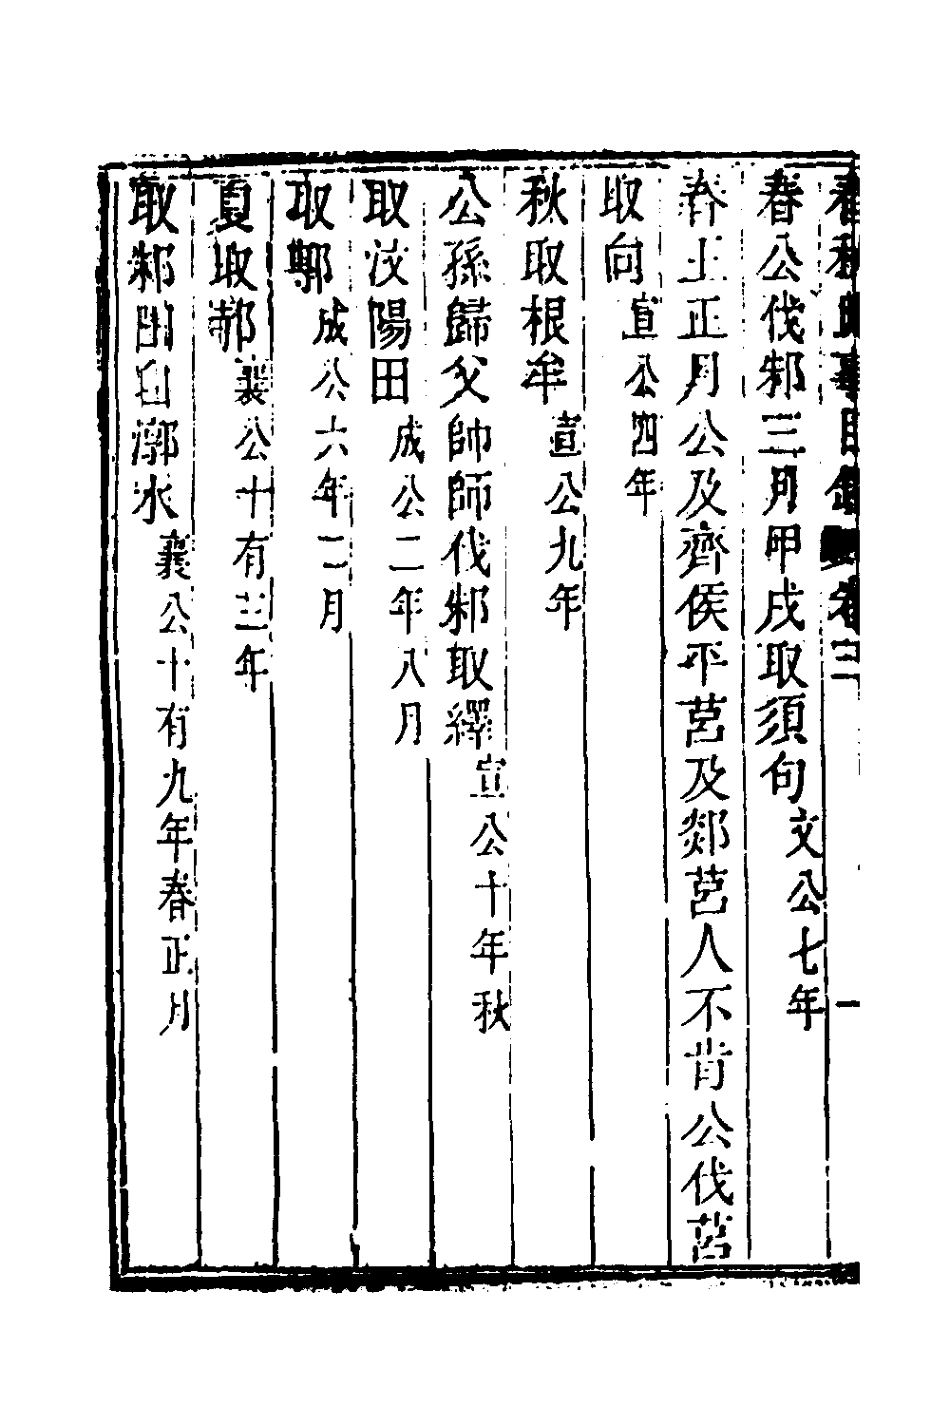 春秋比事目錄卷三一
春公伐邾三月甲戌取須句文公七年
春王正月公及齊侯平莒及郯莒人不肯公伐莒
取向宣公四年
秋取根牟宣公九年
公孫歸父帥師伐邾取繹宣公十年秋
取汶陽田成公二年八月
取鄟成公六年二月
夏取邿襄公十有三年
取邾田自漷水襄公十有九年春正月